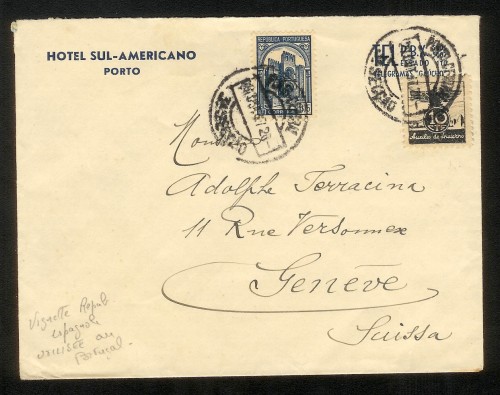 HOTEL SUL-AMERICANO
PORTO
REPUBLICA PORTUGUESA
TEL
P.B.X.
ESTADO
TELEGRAMAS
10
Auxilio de Invierno
Adolphe Terracina
11 Rue Versonnex
Genève
Suissa
Vignette Republ
espagnole
au
Portugal